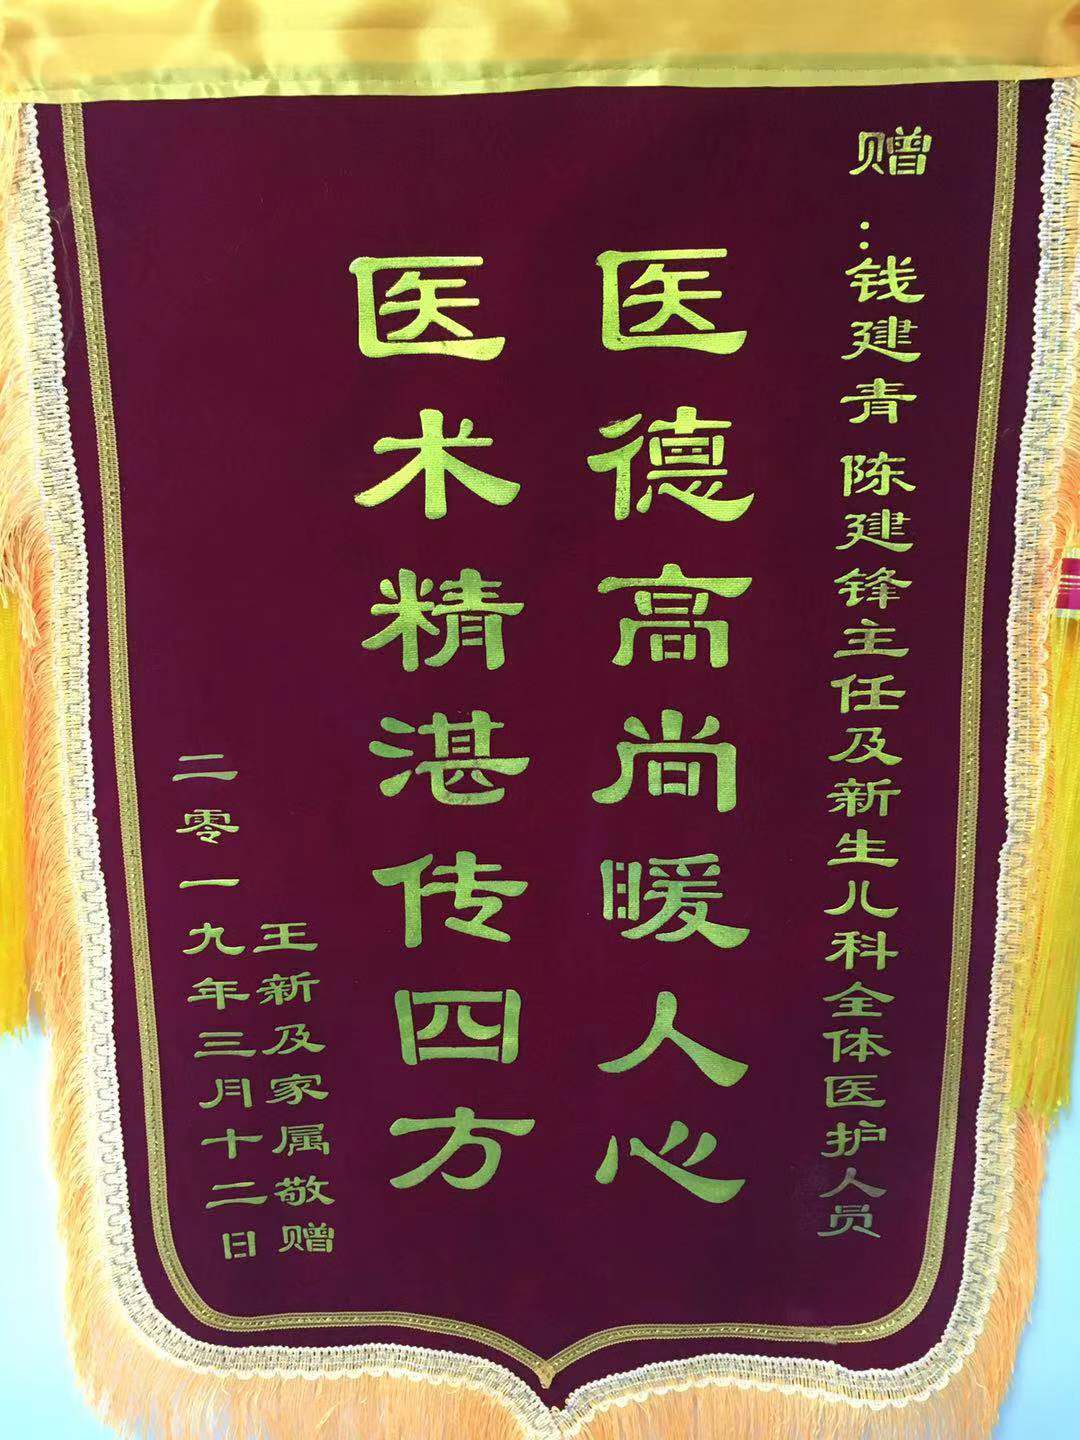 赠：钱建青陈建锋主任及新生儿科全体医护人员
医德高尚暖人心
医术精湛传四方
王新及家属敬赠
二零一九年三月十二日